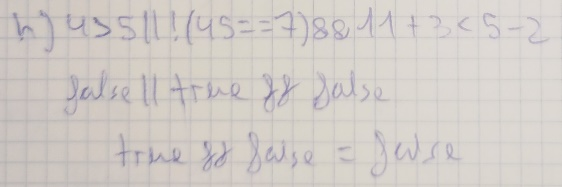 h) 4>5||!(45==7)&&11+3<5-2
false || true && false
true && false = false